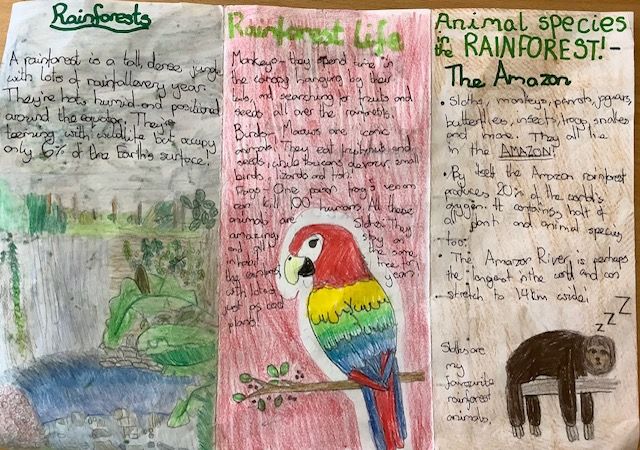 Rainforests
A rainforest is a tall, dense jungle
with lots of rainfall every year.
They're hot, humid and positioned
around the equator. They're
teeming with wildlife but occupy
only 6% of the Earth's surface!
Rainforest life
Monkeys - they spend time in
the canopy hanging by their
tails, and searching for fruits and
seeds all over the
Birds - Macaws are iconic
animals. They eat fruits, nuts and
seeds, while toucans devour small
birds, lizards and fish!
Frogs - One poison frog's venom
can kill 100 humans. All these
animals are
amazing
and
inhabit
the
with lots
just
plants!
Sloths: They
stay on
the same
tree for
years!
Animal species
in the RAINFOREST! -
The Amazon
• Sloths, monkeys, parrots, jaguars,
butterflies, insects, frogs, snakes
and more. They all live
in the AMAZON!
• By itself the Amazon rainforest
produces 20% of the world's
oxygen. It contains half of
all plant and animal species
too.
• The Amazon River, is perhaps
the longest in the world and can
stretch to 14km wide!
Sloths are
my
favourite
rainforest
animals.
z z Z